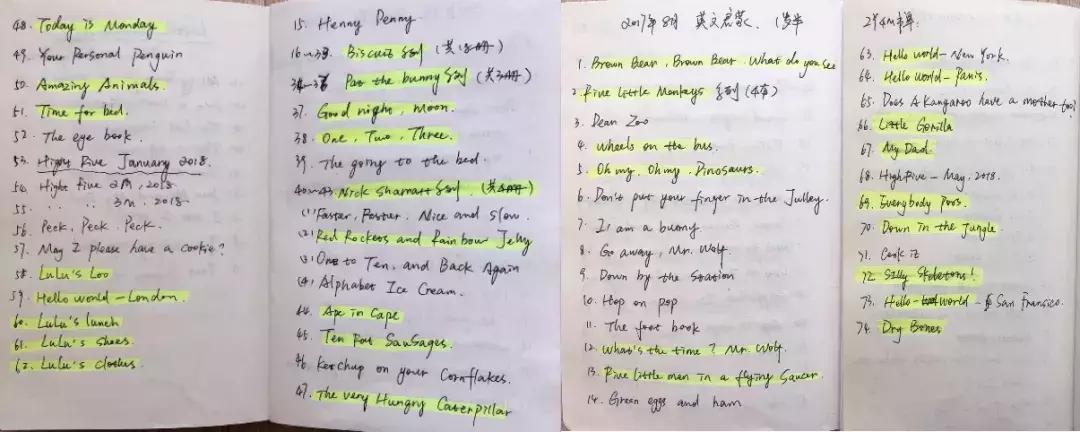 48. Today is Monday
49. Your Personal Penguin
50. Amazing Animals.
51. Time for bed.
52. The eye book.
53. Hight Five January 2018.
54. Hight Five 2月, 2018
55. 〃 〃 3月, 2018.
56. Peek, Peck, Peck.
57. May I please have a cookie?
58. LuLu's Loo
59. Hello world - London.
60. LuLu's lunch
61. LuLu's shoes.
62. LuLu's clothes.
15. Henny Penny.
16~33. Biscuit系列 (共18册)
34~36 Pat the bunny系列 (共3册)
37. Good night, moon.
38. One, Two, Three.
39. The going to the bed.
40~43. Nick Sharratt系列, (共4册)
(1) Faster, Faster, Nice and Slow.
(2) Red Rockets and Rainbow Jelly
(3) One to Ten, and Back Again
(4) Alphabet Ice Cream.
44. Ape in Cape
45. Ten Fat Sausages.
46. Ketchup on your Cornflakes.
47. The very Hungry Caterpillar
2017年8月 英文启蒙. 1岁半
1. Brown Bear, Brown Bear, What do you see
2. Five Little Monkeys 系列(4本)
3. Dear Zoo
4. Wheels on the bus.
5. Oh my, Oh my, Dinosaurs.
6. Don't put your finger in the Julley.
7. I am a bunny.
8. Go away, Mr. Wolf.
9. Down by the station
10. Hop on pop
11. The foot book
12. What's the time? Mr. Wolf.
13. Five little men in a flying Saucer.
14. Green eggs and ham
2岁4M半:
63. Hello world - New York.
64. Hello world - Paris.
65. Does A Kangaroo have a mother too?
66. Little Gorilla
67. My Dad.
68. HighFive - May, 2018.
69. Everybody Poos.
70. Down in the jungle
71. Cook it
72. Silly Skeletons!
73. Hello - world - San Fransico.
74. Dry Bones